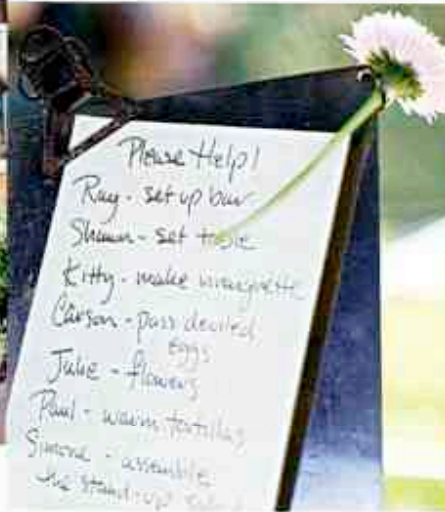 Please Help!
Ray - set up bar
Shawn - set table
Kitty - make vinaigrette
Carson - pass deviled
eggs
Julie - flowers
Paul - warm tortillas
Simone - assemble
the stand-up